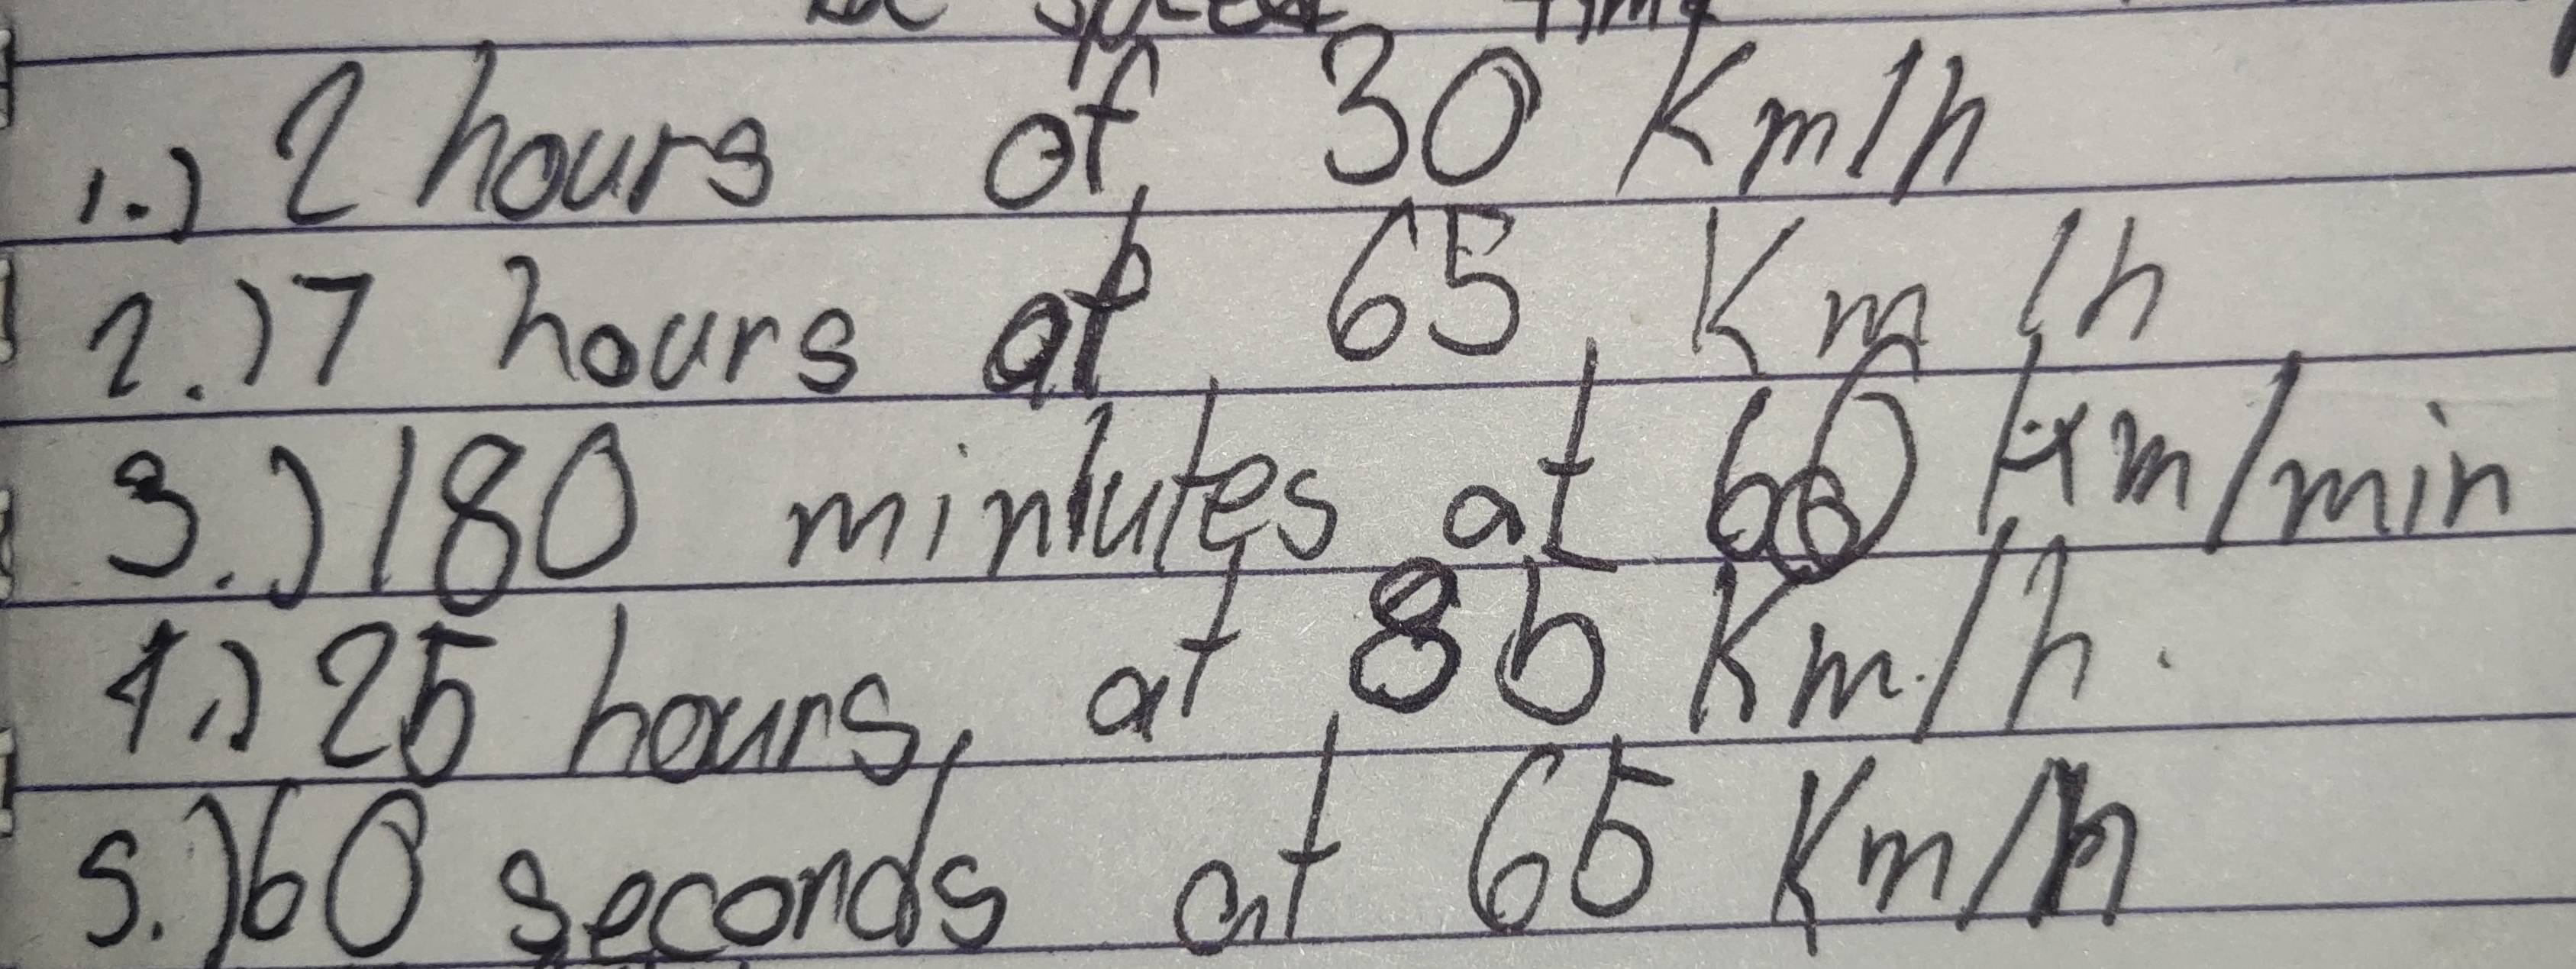 speed time
1.) 2 hours at 30 Km/h
2.) 7 hours at 65 Km/h
3.) 180 minutes at 60 Km/min
4.) 25 hours at 85 Km/h.
5.) 60 seconds at 65 Km/h